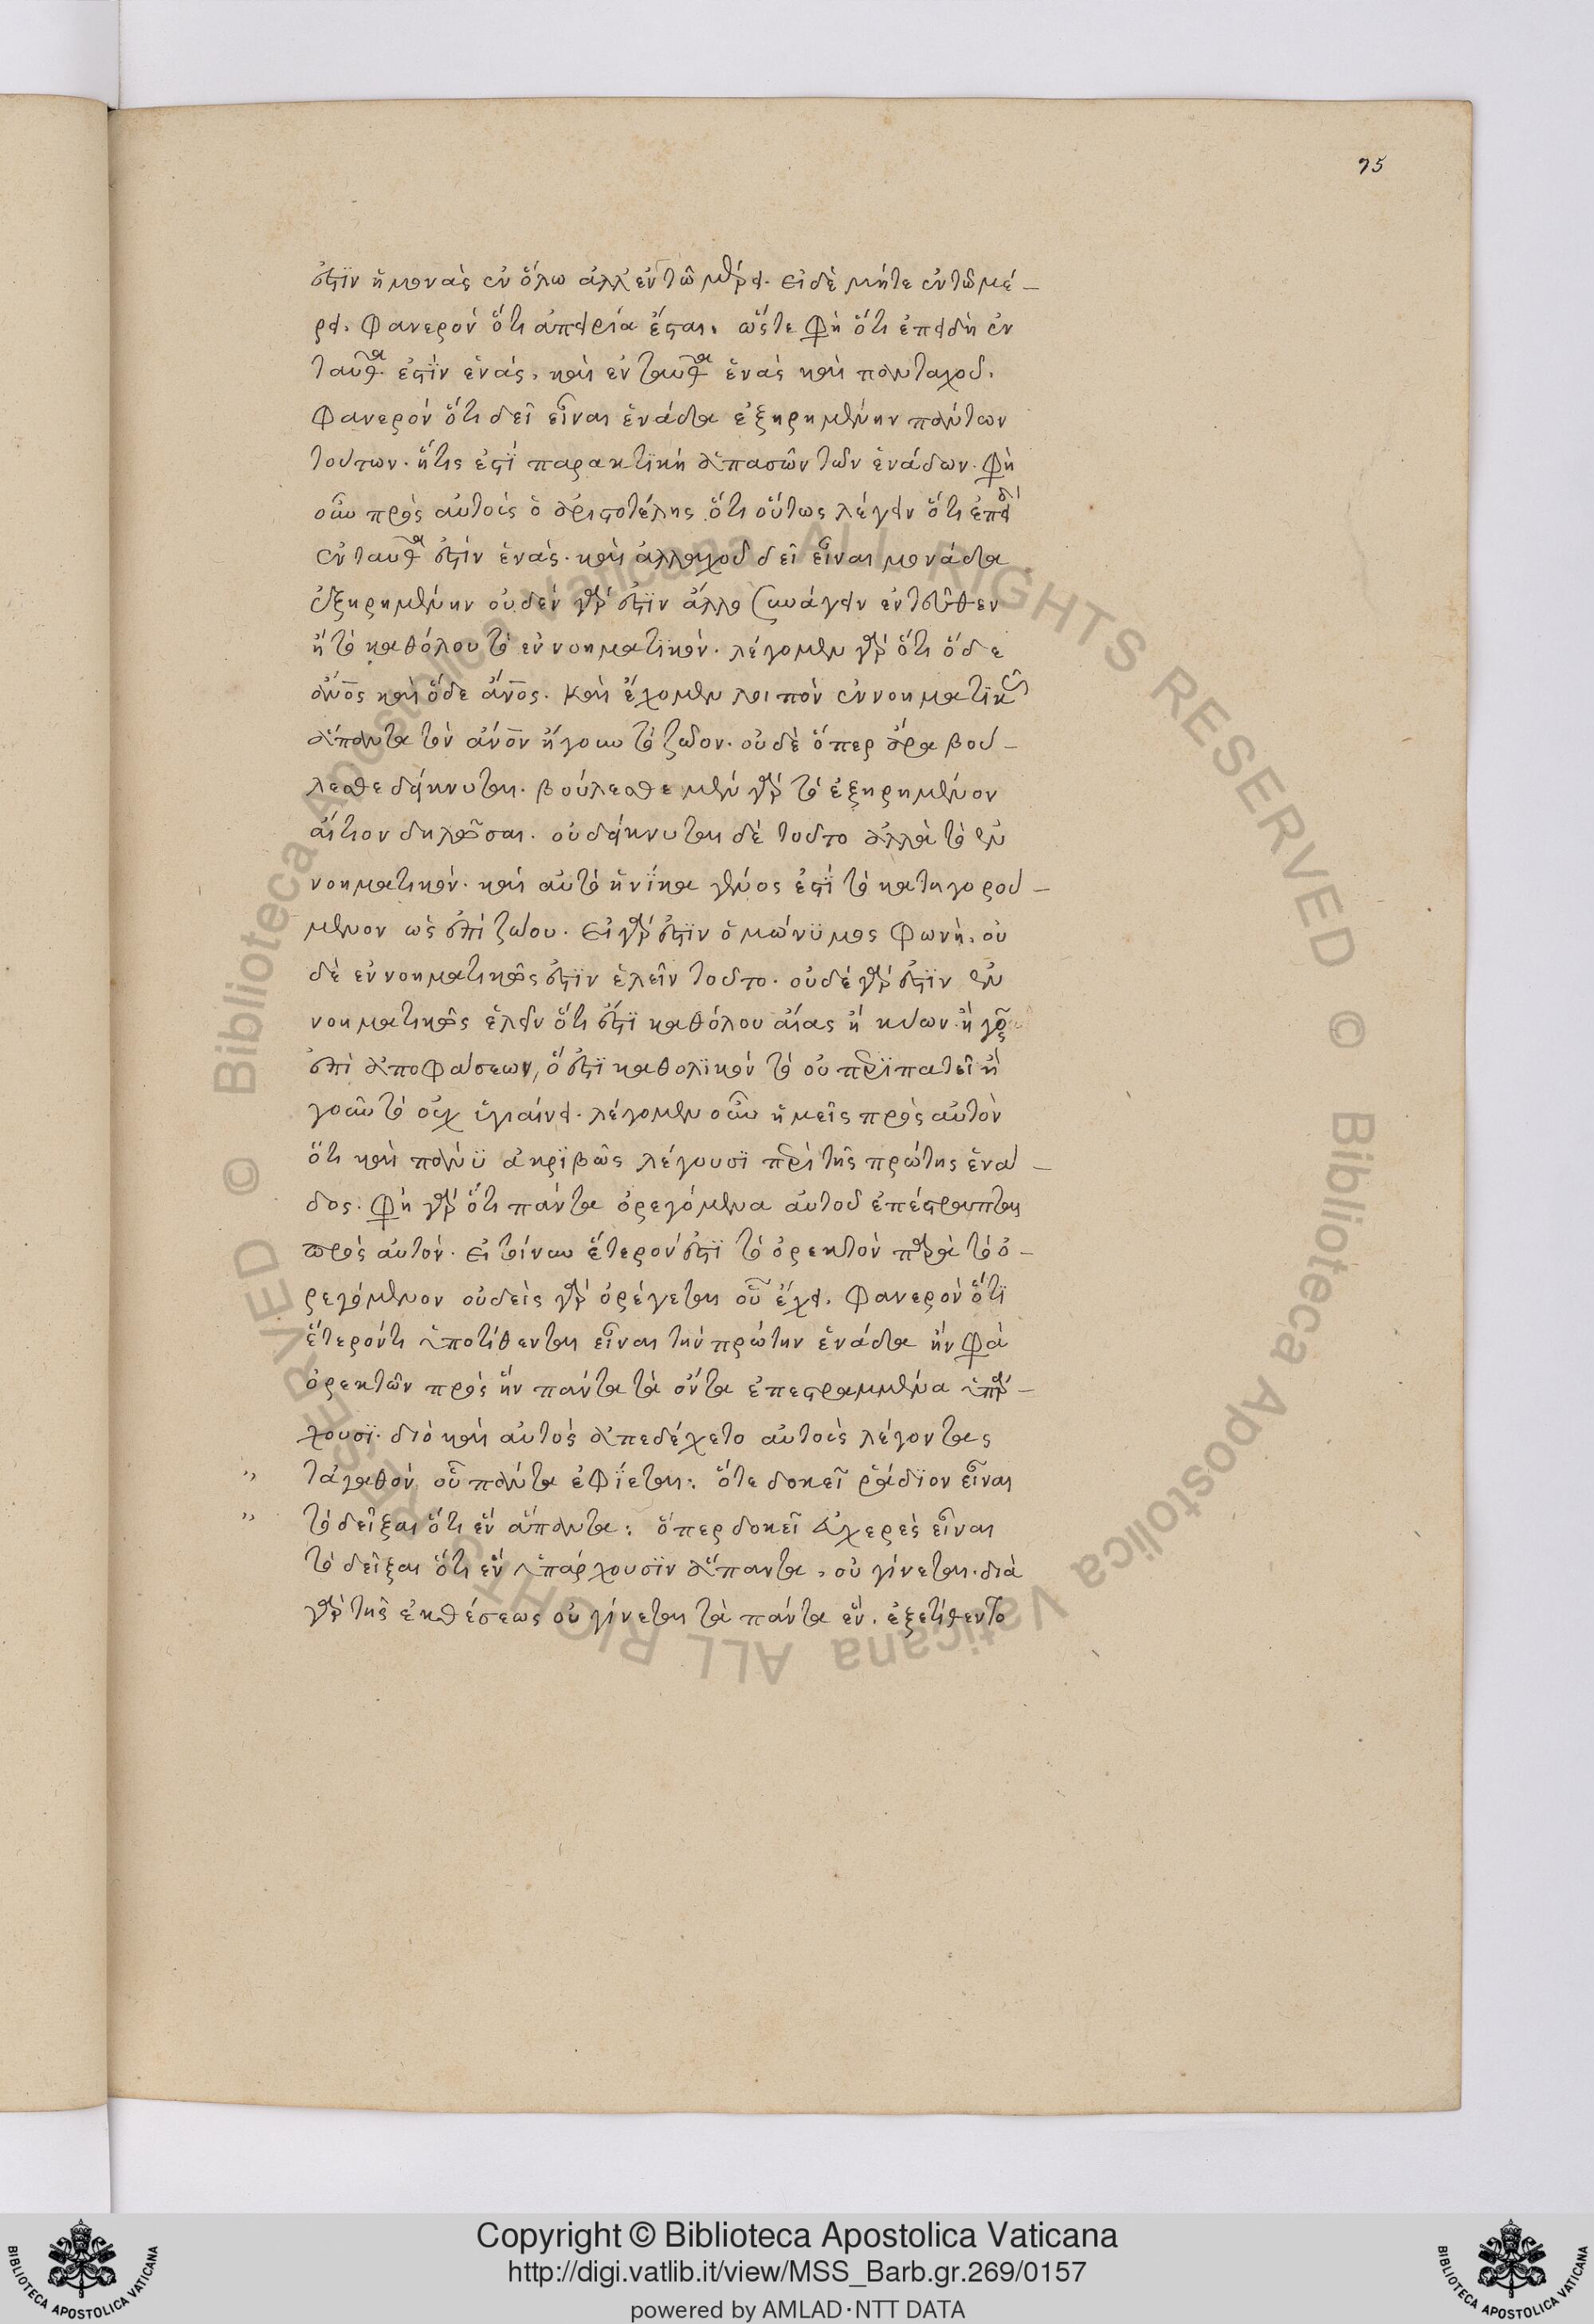 75
ἐστϊν ἡ μονὰς ἐν ὅλω ἀλλ' ἐν τῶ μέρει. εἰ δὲ μήτε ἐν τῶ μέ-
ρει. φανερὸν ὅτι ἀπειρία ἔσται. ὥστε φησὶ ὅτι ἐπειδὴ ἐν
ταῦθα ἐστϊν ἑνάς. καὶ ἐνταῦθα ἑνὰς καὶ πανταχοῦ.
φανερὸν ὅτι δεῖ εἶναι ἑνάδα ἐξηρημένην πάντων
τούτων. ἥτις ἐστϊ παρακτϊκὴ ἁπασῶν τῶν ἑνάδων. φησὶ
οὖν πρὸς αὐτοὺς ὁ ἀριστοτέλης ὅτι οὕτως λέγειν ὅτι ἐπειδὴ
ἐνταῦθα ἐστὶν ἑνάς. καὶ ἀλλαχοῦ δεῖ εἶναι μονάδα
ἐξηρημένην οὐδὲν γάρ ἐστϊν ἄλλο συνάγειν ἐντεῦθεν
ἢ τὸ καθόλου τὸ ἐννοηματϊκόν. λέγομεν γὰρ ὅτι ὅδε
ἄνος καὶ ὅδε ἄνος. καὶ ἔχομεν λοιπὸν ἐννοηματϊκῶς
ἅπαντα τὸν ἄνον ἤγουν τὸ ζῶον. οὐδὲ ὅπερ ἄρα βού-
λεσθε δείκνυται. βούλεσθε μὲν γὰρ τὸ ἐξηρημένον
αἴτιον δηλῶσαι. οὐ δείκνυται δὲ τοῦτο ἀλλὰ τὸ ἐν
νοηματικόν. καὶ αὐτὸ ἡνϊκα γένος ἐστϊ τὸ κατηγορού-
μενον ὡς ἐπὶ ζώου. εἰ γάρ ἐστϊν ὁμώνϋμος φωνή. οὐ
δὲ ἐννοηματικῶς ἐστϊν ἑλεῖν τοῦτο. οὐδὲ γάρ ἐστϊν ἐν
νοηματικῶς ἑλεῖν ὅτι ἐστϊ καθόλου αἴας ἢ κύων. ἢ
ἐπὶ ἀποφάσεων, ὅ ἐστϊ καθολϊκὸν τὸ οὐ περϊπατεῖ ἢ
γοῦν τὸ οὐχ ὑγιαίνει. λέγομεν οὖν ἡμεῖς πρὸς αὐτὸν
ὅτι καὶ πάνϋ ἀκρϊβῶς λέγουσϊ περὶ τῆς πρώτης ἑνά-
δος. φησὶ γὰρ ὅτι πάντα ὀρεγόμενα αὐτοῦ ἐπέστραπται
πρὸς αὐτόν. εἰ τοίνυν ἕτερόν ἐστϊ τὸ ὀρεκτὸν παρὰ τὸ ὀ-
ρεγόμενον οὐδεὶς γὰρ ὀρέγεται οὗ ἔχει. φανερὸν ὅτϊ
ἕτερόν τι ὑποτίθενται εἶναι τὴν πρώτην ἑνάδα ἥν φασὶ
ὀρεκτῶν πρὸς ἣν πάντα τὰ ὄντα ἐπεστραμμένα ὑπάρ-
χουσϊ. διὸ καὶ αὐτὸς ἀπεδέχετο αὐτοὺς λέγοντας
" τἀγαθὸν οὗ πάντα ἐφϊεται: ὅτε δοκεῖ ῥάδϊον εἶναι
" τὸ δεῖξαι ὅτι ἓν ἅπαντα: ὅπερ δοκεῖ εὐχερὲς εἶναι
τὸ δεῖξαι ὅτι ἓν ὑπάρχουσϊν ἅπαντα, οὐ γίνεται. διὰ
γὰρ τῆς ἐκθέσεως οὐ γίνεται τὰ πάντα ἕν. ἐξετίθεντο
© Biblioteca Apostolica Vaticana ALL RIGHTS RESERVED
© Biblioteca Apostolica Vaticana ALL RIGHTS RESERVED
BIBLIOTECA APOSTOLICA VATICANA
Copyright © Biblioteca Apostolica Vaticana
http://digi.vatlib.it/view/MSS_Barb.gr.269/0157
powered by AMLAD·NTT DATA
BIBLIOTECA APOSTOLICA VATICANA